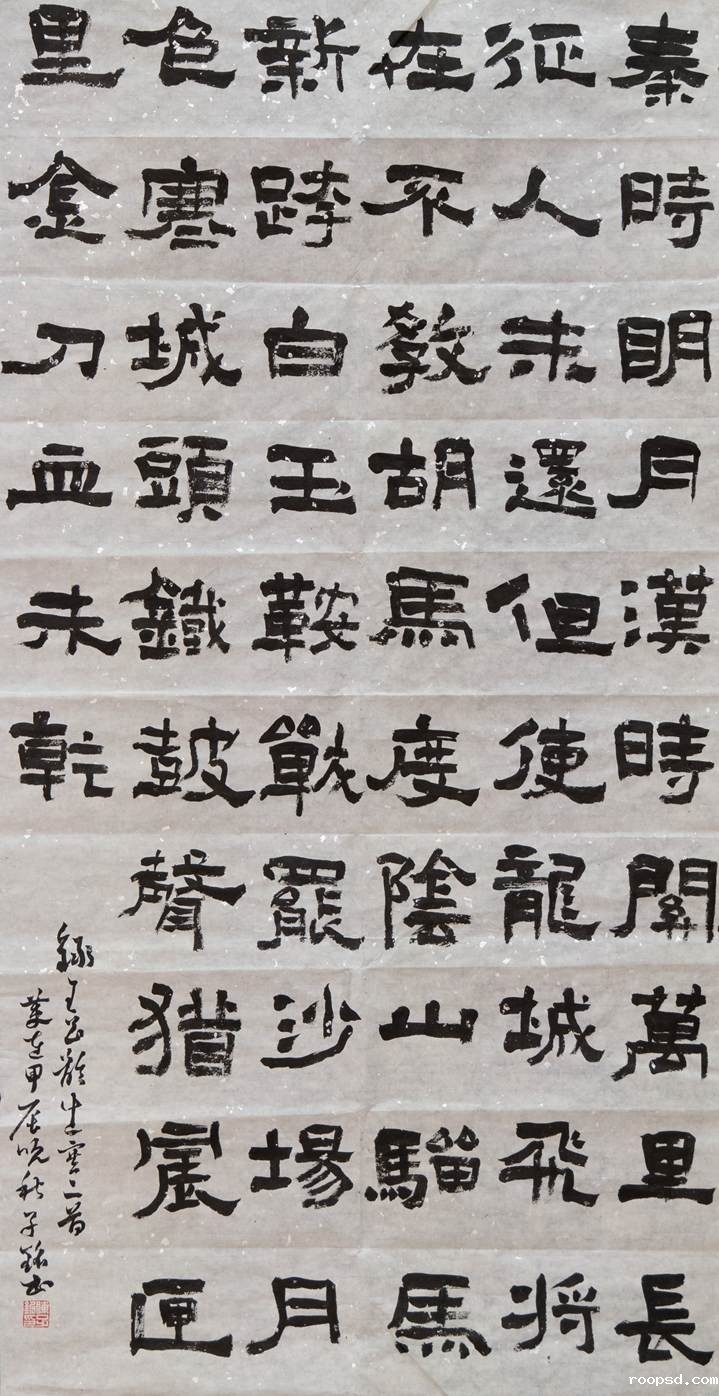 秦時明月漢時關萬里長
征人未還但使龍城飛將
在不教胡馬度陰山騮馬
新跨白玉鞍戰罷沙場月
色寒城頭鐵鼓聲猶震匣
里金刀血未乾
錄王昌齡出塞二首
歲在甲辰晚秋子銘書
roopsd.com